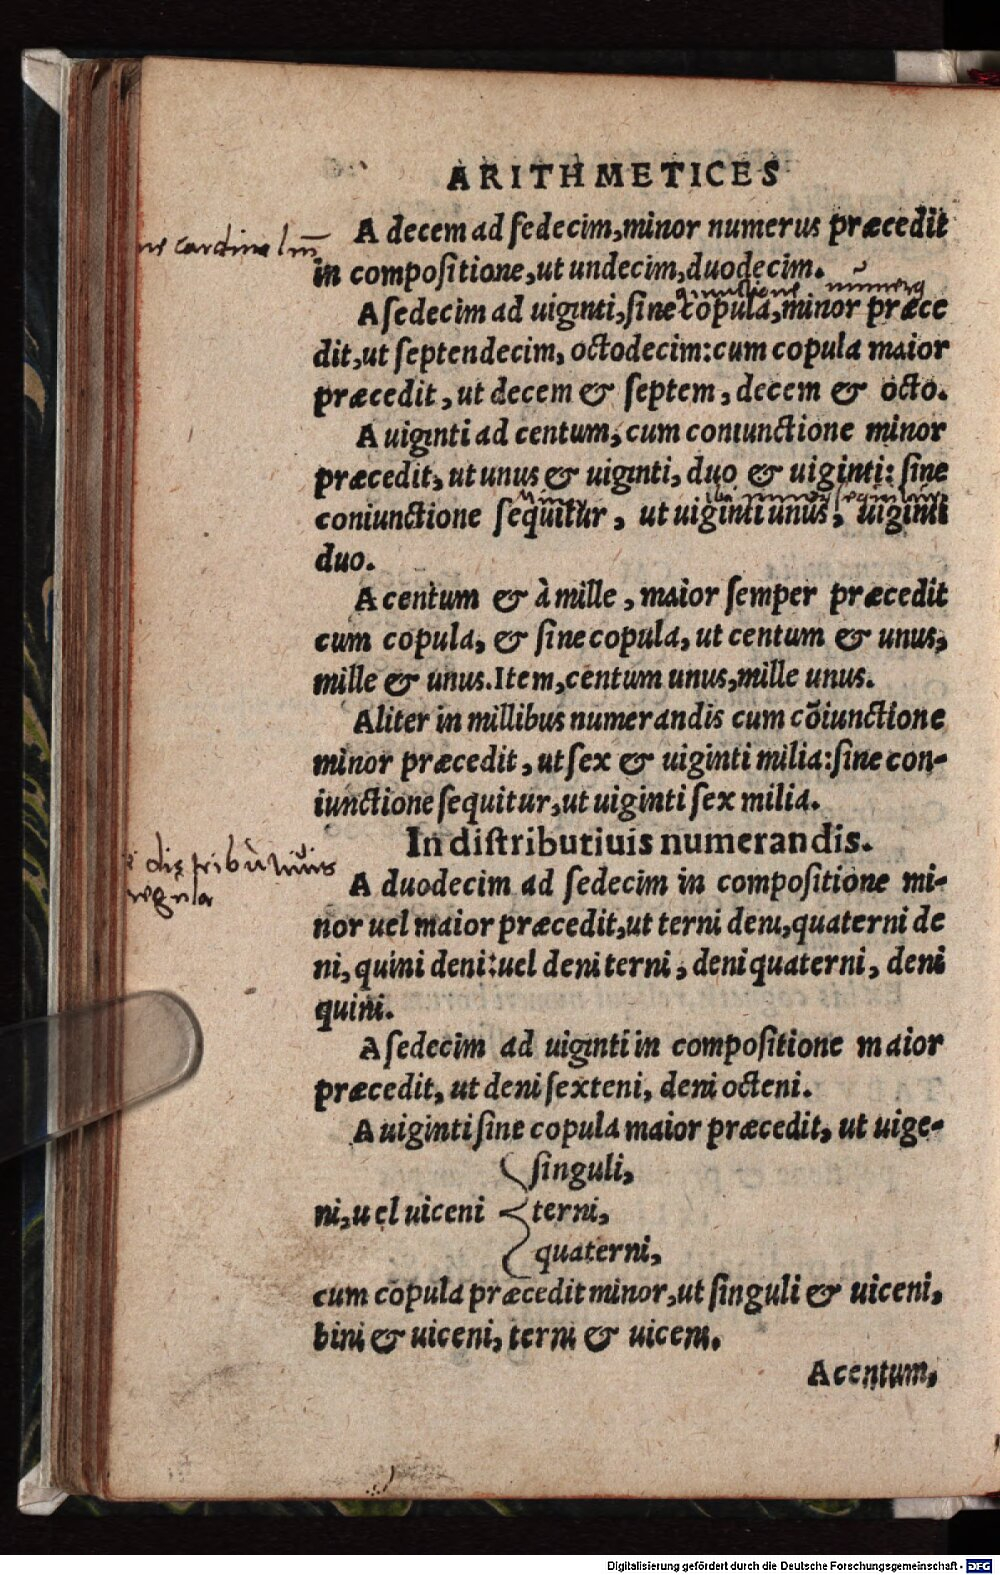 ARITHMETICES
A decem ad sedecim, minor numerus præcedit
in compositione, ut undecim, duodecim.
A sedecim ad uiginti, sine copula, minor præce
dit, ut septendecim, octodecim: cum copula maior
præcedit, ut decem & septem, decem & octo.
A uiginti ad centum, cum coniunctione minor
præcedit, ut unus & uiginti, duo & uiginti: sine
coniunctione sequitur, ut uiginti unus, uiginti
duo.
A centum & à mille, maior semper præcedit
cum copula, & sine copula, ut centum & unus,
mille & unus. Item, centum unus, mille unus.
Aliter in millibus numerandis cum cōiunctione
minor præcedit, ut sex & uiginti milia: sine con-
iunctione sequitur, ut uiginti sex milia.
In distributiuis numerandis.
distributiuis
regula
A duodecim ad sedecim in compositione mi-
nor uel maior præcedit, ut terni deni, quaterni de
ni, quini deni: uel deni terni, deni quaterni, deni
quini.
A sedecim ad uiginti in compositione maior
præcedit, ut deni sexteni, deni octeni.
A uiginti sine copula maior præcedit, ut uige-
singuli,
ni, uel uiceni terni,
quaterni,
cum copula præcedit minor, ut singuli & uiceni,
bini & uiceni, terni & uiceni.
A centum,
Digitalisierung gefördert durch die Deutsche Forschungsgemeinschaft - DFG